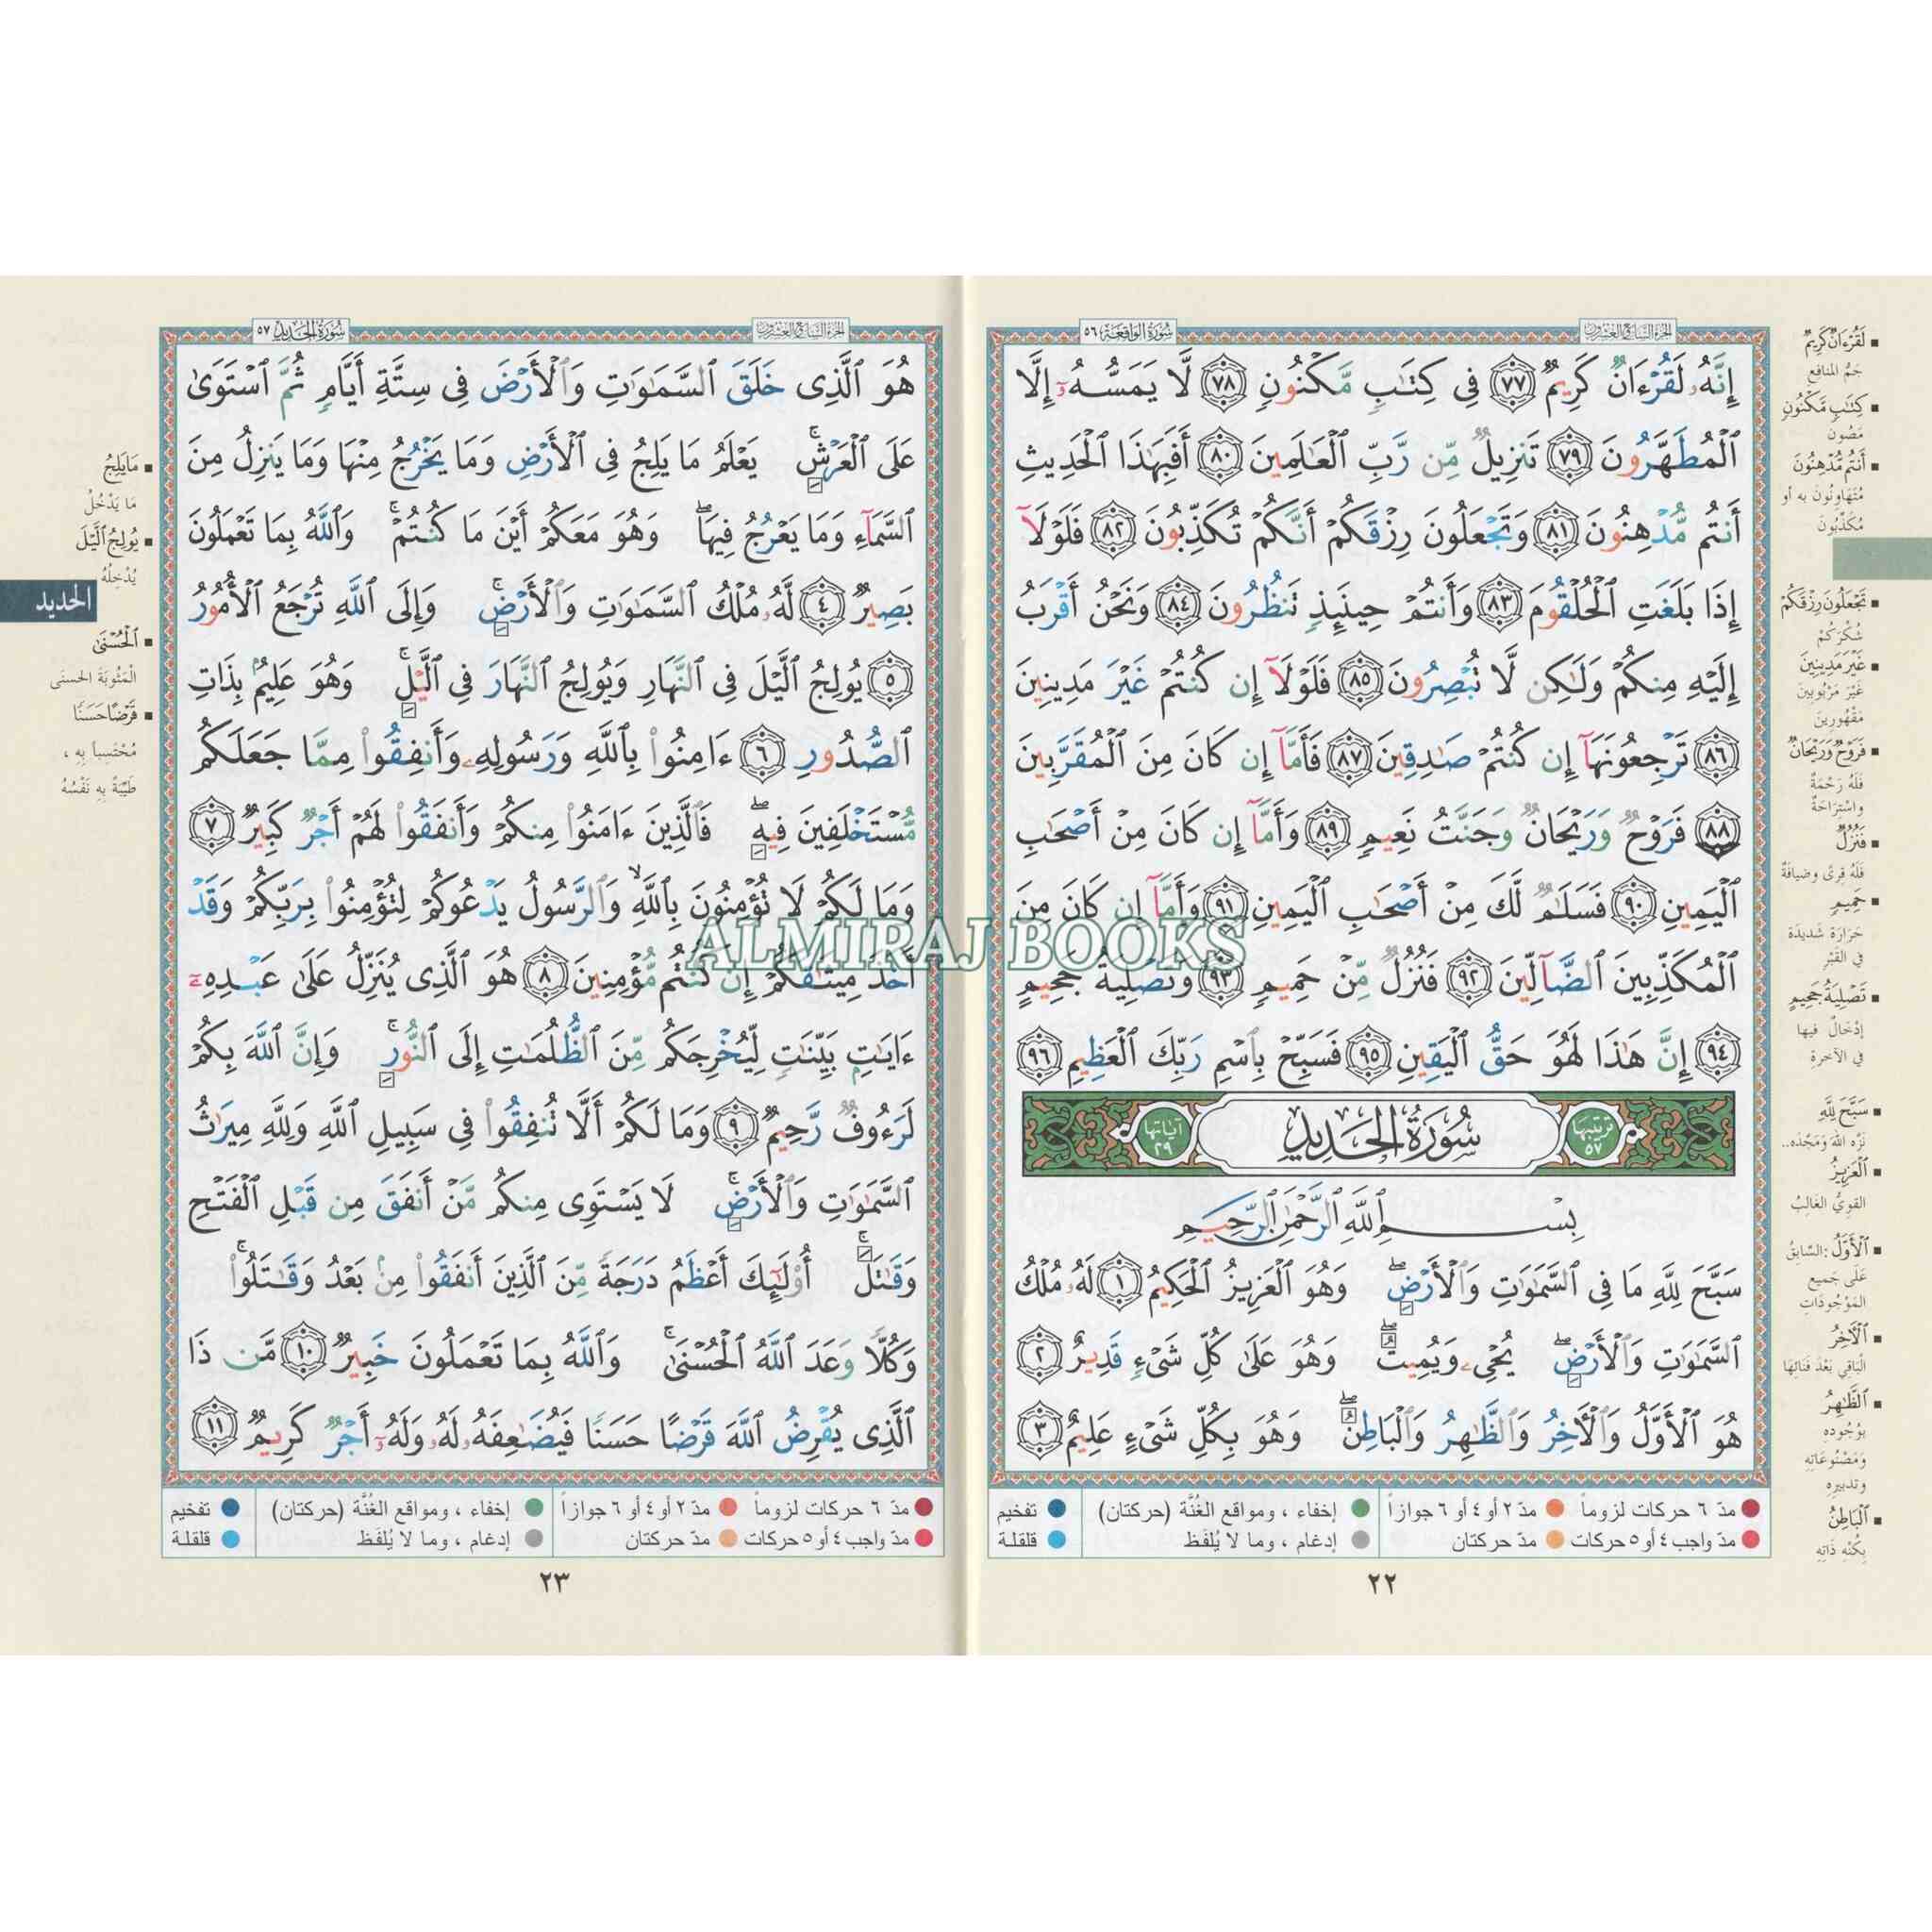 الجزء السابع والعشرون
سورة الواقعة ٥٦
إِنَّهُۥ لَقُرْءَانٌ كَرِيمٌ ٧٧ فِى كِتَـٰبٍ مَّكْنُونٍ ٧٨ لَّا يَمَسُّهُۥٓ إِلَّا
ٱلْمُطَهَّرُونَ ٧٩ تَنزِيلٌ مِّن رَّبِّ ٱلْعَـٰلَمِينَ ٨٠ أَفَبِهَـٰذَا ٱلْحَدِيثِ
أَنتُم مُّدْهِنُونَ ٨١ وَتَجْعَلُونَ رِزْقَكُمْ أَنَّكُمْ تُكَذِّبُونَ ٨٢ فَلَوْلَآ
إِذَا بَلَغَتِ ٱلْحُلْقُومَ ٨٣ وَأَنتُمْ حِينَئِذٍ تَنظُرُونَ ٨٤ وَنَحْنُ أَقْرَبُ
إِلَيْهِ مِنكُمْ وَلَـٰكِن لَّا تُبْصِرُونَ ٨٥ فَلَوْلَآ إِن كُنتُمْ غَيْرَ مَدِينِينَ
٨٦ تَرْجِعُونَهَآ إِن كُنتُمْ صَـٰدِقِينَ ٨٧ فَأَمَّآ إِن كَانَ مِنَ ٱلْمُقَرَّبِينَ
٨٨ فَرَوْحٌ وَرَيْحَانٌ وَجَنَّتُ نَعِيمٍ ٨٩ وَأَمَّآ إِن كَانَ مِنْ أَصْحَـٰبِ
ٱلْيَمِينِ ٩٠ فَسَلَـٰمٌ لَّكَ مِنْ أَصْحَـٰبِ ٱلْيَمِينِ ٩١ وَأَمَّآ إِن كَانَ مِنَ
ٱلْمُكَذِّبِينَ ٱلضَّآلِّينَ ٩٢ فَنُزُلٌ مِّنْ حَمِيمٍ ٩٣ وَتَصْلِيَةُ جَحِيمٍ
٩٤ إِنَّ هَـٰذَا لَهُوَ حَقُّ ٱلْيَقِينِ ٩٥ فَسَبِّحْ بِٱسْمِ رَبِّكَ ٱلْعَظِيمِ ٩٦
ترتيبها ٥٧ سُورَةُ الحَدِيد آياتها ٢٩
بِسْمِ ٱللَّهِ ٱلرَّحْمَـٰنِ ٱلرَّحِيمِ
سَبَّحَ لِلَّهِ مَا فِى ٱلسَّمَـٰوَٰتِ وَٱلْأَرْضِ ۖ وَهُوَ ٱلْعَزِيزُ ٱلْحَكِيمُ ١ لَهُۥ مُلْكُ
ٱلسَّمَـٰوَٰتِ وَٱلْأَرْضِ ۖ يُحْىِۦ وَيُمِيتُ ۖ وَهُوَ عَلَىٰ كُلِّ شَىْءٍ قَدِيرٌ ٢
هُوَ ٱلْأَوَّلُ وَٱلْـَٔاخِرُ وَٱلظَّـٰهِرُ وَٱلْبَاطِنُ ۖ وَهُوَ بِكُلِّ شَىْءٍ عَلِيمٌ ٣
مدّ ٦ حركات لزوماً مدّ ٢ أو ٤ أو ٦ جوازاً إخفاء ، ومواقع الغُنَّة (حركتان) تفخيم
مدّ واجب ٤ أو ٥ حركات مدّ حركتان إدغام ، وما لا يُلفَظ قلقلة
٢٢
لَقُرْءَانٌ كَرِيمٌ
جَمُّ المنافع
كِتَـٰبٍ مَّكْنُونٍ
مَصُون
أَنتُم مُّدْهِنُونَ
مُتَهَاوِنُونَ به أو
مُكَذِّبُونَ
تَجْعَلُونَ رِزْقَكُمْ
شُكْرَكُمْ
غَيْرَ مَدِينِينَ
غَيْرَ مَرْبُوبِينَ
مَقْهُورِينَ
فَرَوْحٌ وَرَيْحَانٌ
فَلَهُ رَحْمَةٌ
واسْتِرَاحَةٌ
فَنُزُلٌ
فَلَهُ قِرىً وضيافَةٌ
حَمِيمٍ
حَرَارَة شَديدَة
في القَبْر
تَصْلِيَةُ جَحِيمٍ
إدْخَالٌ فيها
في الآخرة
سَبَّحَ لِلَّهِ
نَزَّهَ اللهَ وَمَجَّدَه..
ٱلْعَزِيزُ
القويُّ الغَالِبُ
ٱلْأَوَّلُ: السَّابِقُ
عَلَى جَمِيع
المَوْجُودَاتِ
ٱلْـَٔاخِرُ
الْبَاقِي بَعْدَ فَنَائِهَا
ٱلظَّـٰهِرُ
بوُجُودِهِ
وَمَصْنُوعَاتِهِ
وتدبيرِهِ
ٱلْبَاطِنُ
بِكُنْهِ ذَاتِهِ
الجزء السابع والعشرون
سورة الحديد ٥٧
هُوَ ٱلَّذِى خَلَقَ ٱلسَّمَـٰوَٰتِ وَٱلْأَرْضَ فِى سِتَّةِ أَيَّامٍ ثُمَّ ٱسْتَوَىٰ
عَلَى ٱلْعَرْشِ ۚ يَعْلَمُ مَا يَلِجُ فِى ٱلْأَرْضِ وَمَا يَخْرُجُ مِنْهَا وَمَا يَنزِلُ مِنَ
ٱلسَّمَآءِ وَمَا يَعْرُجُ فِيهَا ۖ وَهُوَ مَعَكُمْ أَيْنَ مَا كُنتُمْ ۚ وَٱللَّهُ بِمَا تَعْمَلُونَ
بَصِيرٌ ٤ لَّهُۥ مُلْكُ ٱلسَّمَـٰوَٰتِ وَٱلْأَرْضِ ۚ وَإِلَى ٱللَّهِ تُرْجَعُ ٱلْأُمُورُ
٥ يُولِجُ ٱلَّيْلَ فِى ٱلنَّهَارِ وَيُولِجُ ٱلنَّهَارَ فِى ٱلَّيْلِ ۚ وَهُوَ عَلِيمٌ بِذَاتِ
ٱلصُّدُورِ ٦ ءَامِنُوا۟ بِٱللَّهِ وَرَسُولِهِۦ وَأَنفِقُوا۟ مِمَّا جَعَلَكُم
مُّسْتَخْلَفِينَ فِيهِ ۖ فَٱلَّذِينَ ءَامَنُوا۟ مِنكُمْ وَأَنفَقُوا۟ لَهُمْ أَجْرٌ كَبِيرٌ ٧
وَمَا لَكُمْ لَا تُؤْمِنُونَ بِٱللَّهِ ۙ وَٱلرَّسُولُ يَدْعُوكُمْ لِتُؤْمِنُوا۟ بِرَبِّكُمْ وَقَدْ
أَخَذَ مِيثَـٰقَكُمْ إِن كُنتُم مُّؤْمِنِينَ ٨ هُوَ ٱلَّذِى يُنَزِّلُ عَلَىٰ عَبْدِهِۦٓ
ءَايَـٰتٍ بَيِّنَـٰتٍ لِّيُخْرِجَكُم مِّنَ ٱلظُّلُمَـٰتِ إِلَى ٱلنُّورِ ۚ وَإِنَّ ٱللَّهَ بِكُمْ
لَرَءُوفٌ رَّحِيمٌ ٩ وَمَا لَكُمْ أَلَّا تُنفِقُوا۟ فِى سَبِيلِ ٱللَّهِ وَلِلَّهِ مِيرَٰثُ
ٱلسَّمَـٰوَٰتِ وَٱلْأَرْضِ ۚ لَا يَسْتَوِى مِنكُم مَّنْ أَنفَقَ مِن قَبْلِ ٱلْفَتْحِ
وَقَـٰتَلَ ۚ أُو۟لَـٰٓئِكَ أَعْظَمُ دَرَجَةً مِّنَ ٱلَّذِينَ أَنفَقُوا۟ مِنۢ بَعْدُ وَقَـٰتَلُوا۟ ۚ
وَكُلًّا وَعَدَ ٱللَّهُ ٱلْحُسْنَىٰ ۚ وَٱللَّهُ بِمَا تَعْمَلُونَ خَبِيرٌ ١٠ مَّن ذَا
ٱلَّذِى يُقْرِضُ ٱللَّهَ قَرْضًا حَسَنًا فَيُضَـٰعِفَهُۥ لَهُۥ وَلَهُۥٓ أَجْرٌ كَرِيمٌ ١١
مدّ ٦ حركات لزوماً مدّ ٢ أو ٤ أو ٦ جوازاً إخفاء ، ومواقع الغُنَّة (حركتان) تفخيم
مدّ واجب ٤ أو ٥ حركات مدّ حركتان إدغام ، وما لا يُلفَظ قلقلة
٢٣
مَا يَلِجُ
مَا يَدْخُلُ
يُولِجُ ٱلَّيْلَ
يُدْخِلُهُ
الحديد
ٱلْحُسْنَىٰ
الْمَثُوبَةَ الحسنَى
قَرْضًا حَسَنًا
مُحْتَسِباً بِهِ ،
طَيِّبَةً بِهِ نَفْسُهُ
ALMIRAJ BOOKS